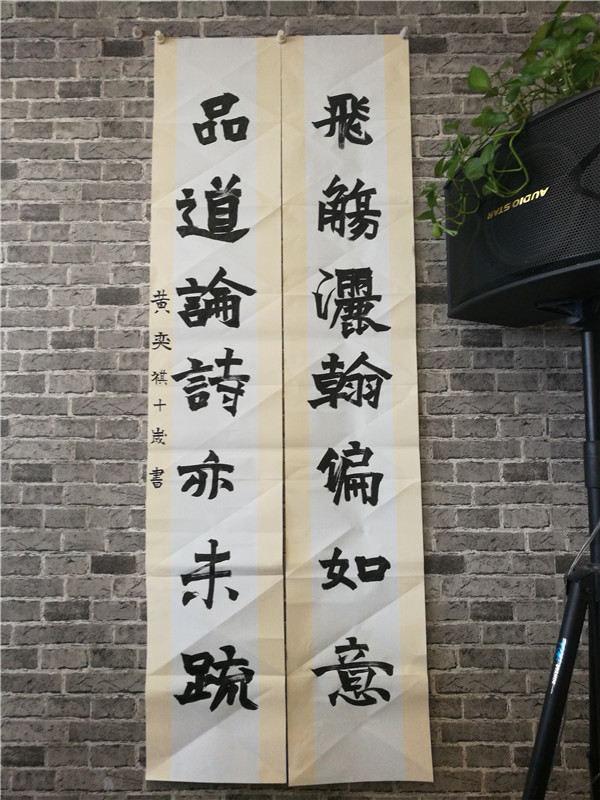 飛觴灑翰偏如意
品道論詩亦未疏
黄奕祺十歲書
AUDIOSTAR